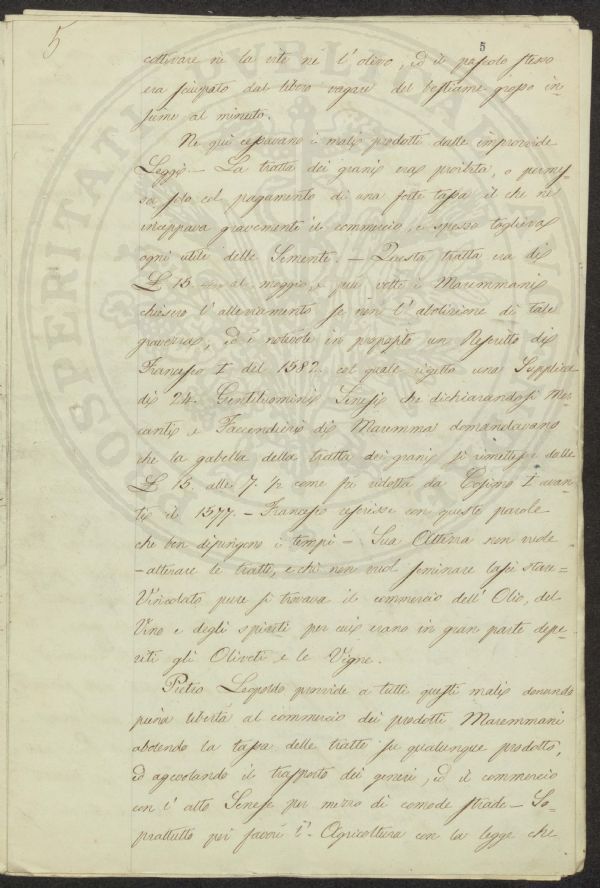 5
5
coltivare nè la vite nè l'olivo, ed il pascolo stesso
era sciupato dal libero vagare del bestiame grosso in-
sieme al minuto.
Nè qui cessavano i mali prodotti dalle improvvide
Leggi. — La tratta dei grani era proibita, o permes-
sa solo col pagamento di una forte tassa il che ne
inceppava gravemente il commercio, e spesso toglieva
ogni utile delle Semente. — Questa tratta era di
£ 15 — al moggio, e più volte i Maremmani
chiesero l'alleviamento se non l'abolizione di tale
gravezza, ed è notevole in proposito un Rescritto di
Francesco I del 1582. col quale rigettò una Supplica
di 24. Gentiluomini Senesi che dichiarandosi Mer-
canti e Faccendieri di Maremma domandavano
che la gabella della tratta dei grani si rimettesse dalle
£ 15. alle 7. ½ come fu ridotta da Cosimo I avan-
ti il 1577. — Francesco rescrisse con queste parole
che ben dipingono i tempi — Sua Altezza non vuole
-alterare le tratte, e chi non vuol seminare lassi stare-
Vincolato pure si trovava il commercio dell'Olio, del
Vino e degli spiriti per cui erano in gran parte depe-
riti gli Oliveti e le Vigne.
Pietro Leopoldo provvide a tutti questi mali donando
piena libertà al commercio dei prodotti Maremmani
abolendo la tassa delle tratte su qualunque prodotto,
ed agevolando il trasporto dei generi, ed il commercio
con l'alto Senese per mezzo di comode strade — So-
prattutto poi favorì l'Agricoltura con la legge che